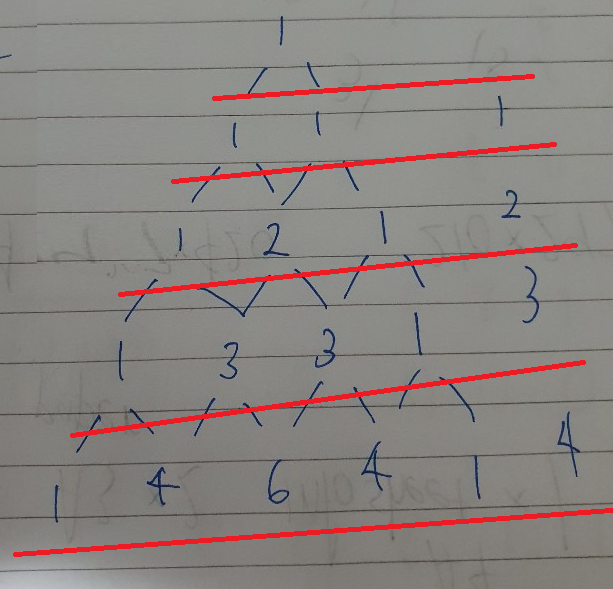 1
1 1 1
1 2 1 2
1 3 3 1 3
1 4 6 4 1 4